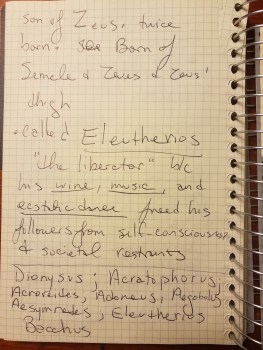 son of Zeus. twice
born. Born of
Semele & Zeus & Zeus'
thigh
• called Eleutherios
"the liberator" b/c
his wine, music, and
ecstatic dance freed his
followers from self-consciousness
& societal restraints
Dionysus; Acratophorus;
Acroreites; Adoneus; Aegobolus;
Aesymnetes; Eleutherios
Bacchus